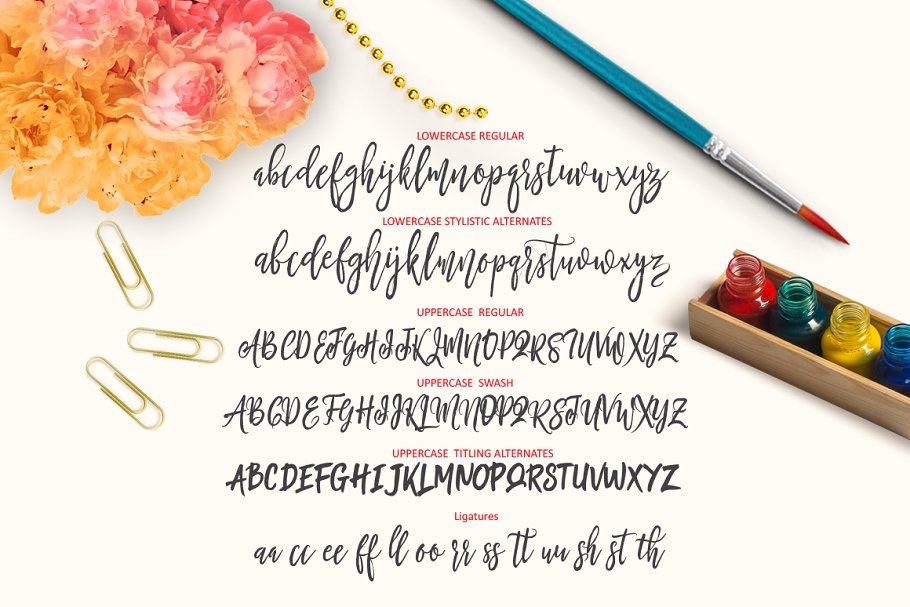 LOWERCASE REGULAR
abcdefghijklmnopqrstuvwxyz
LOWERCASE STYLISTIC ALTERNATES
abcdefghijklmnopqrstuvwxyz
UPPERCASE REGULAR
ABCDEFGHIJKLMNOPQRSTUVWXYZ
UPPERCASE SWASH
ABCDEFGHIJKLMNOPQRSTUVWXYZ
UPPERCASE TITLING ALTERNATES
ABCDEFGHIJKLMNOPQRSTUVWXYZ
Ligatures
aa cc ee ff ll oo rr ss tt uu sh st th